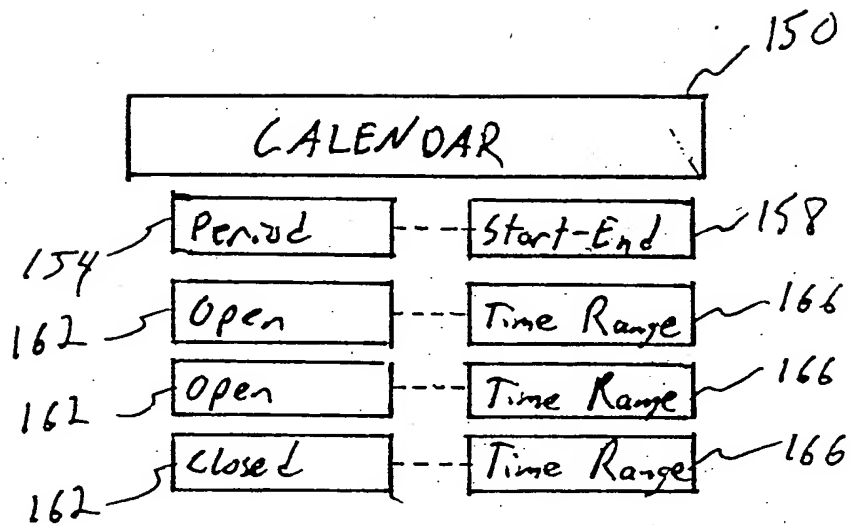 150
CALENDAR
Period Start-End 158
154
Open Time Range 166
162
Open Time Range 166
162
Closed Time Range 166
162